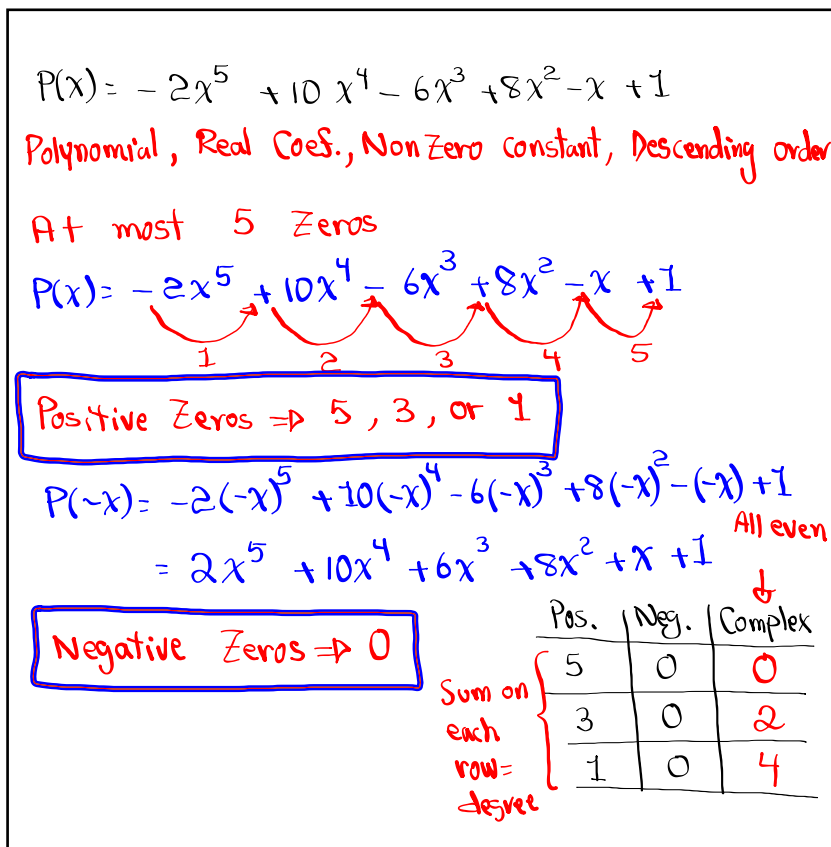 P(x) = -2x⁵ + 10x⁴ - 6x³ + 8x² - x + 1
Polynomial, Real Coef., Non Zero constant, Descending order
At most 5 Zeros
P(x) = -2x⁵ + 10x⁴ - 6x³ + 8x² - x + 1
1 2 3 4 5
Positive Zeros ⇒ 5, 3, or 1
P(-x) = -2(-x)⁵ + 10(-x)⁴ - 6(-x)³ + 8(-x)² - (-x) + 1
= 2x⁵ + 10x⁴ + 6x³ + 8x² + x + 1
Negative Zeros ⇒ 0
All even
↓
Pos. Neg. Complex
5 0 0
3 0 2
1 0 4
Sum on
each
row =
degree